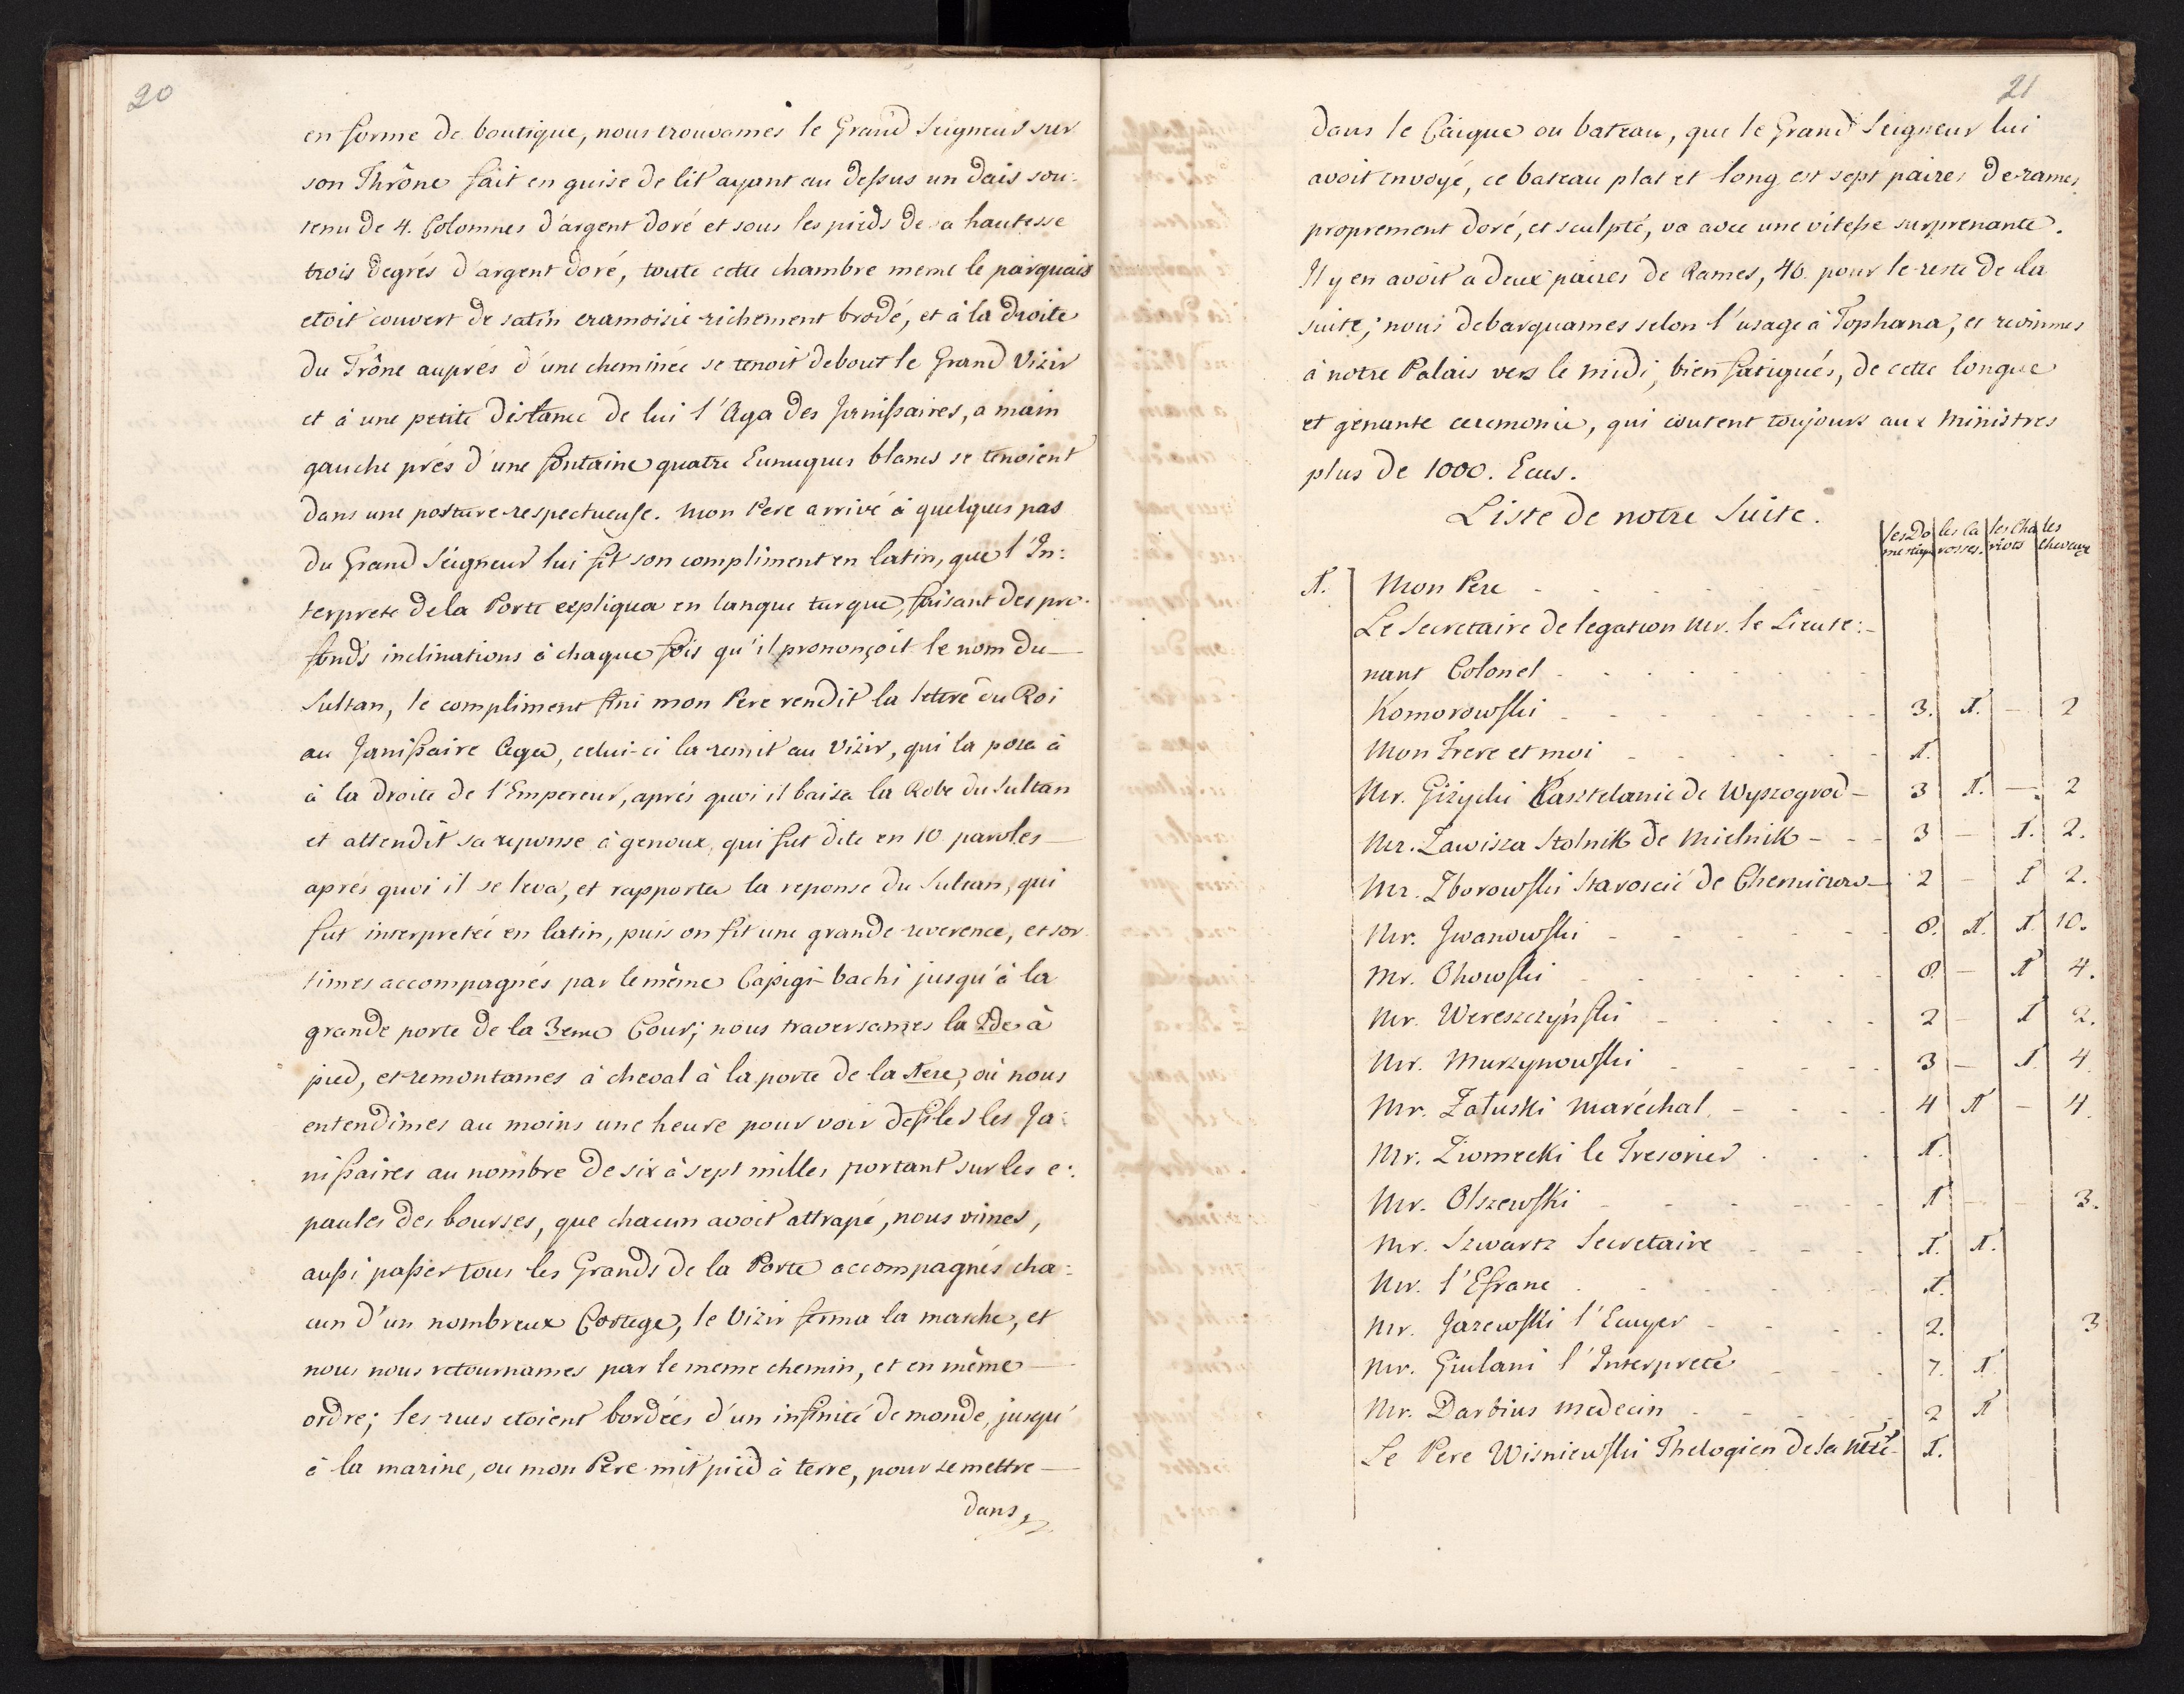 20
en forme de boutique, nous trouvames le Grand Seigneur sur
son Thrône fait en guise de lit ayant au dessus un dais sou-
tenu de 4. Colomnes d'argent doré et sous les pieds de sa hautesse
trois degrés d'argent doré, toute cette chambre meme le parquais
etoit couvert de satin cramoisie richement brodé, et à la droite
du Trône auprés d'une cheminée se tenoit debout le Grand Vizir
et à une petite distance de lui l'Aga des Janissaires, a main
gauche prés d'une fontaine quatre Eunuques blancs se tenoient
dans une posture respectueuse. Mon Pere arrivé à quelques pas
du Grand Seigneur lui fit son compliment en latin, que l'In:
terprete de la Porte expliqua en langue turque, faisant des pro-
fonds inclinations à chaque fois qu'il prononçoit le nom du
Sultan, le compliment fini mon Pere rendit la lettre du Roi
au Janissaire Aga, celui-ci la remit au Vizir, qui la posa à
à la droite de l'Empereur, aprés quoi il baisa la Robe du Sultan
et attendit sa reponse à genoux, qui fut dite en 10 paroles
aprés quoi il se leva, et rapporta la reponse du Sultan, qui
fut interpretée en latin, puis on fit une grande reverence, et sor
times accompagnés par le même Capigi-bachi jusqu'à la
grande porte de la 3eme Cour; nous traversames la 2de à
pied, et remontames à cheval à la porte de la 1ere, où nous
entendimes au moins une heure pour voir defiler les Ja:
nissaires au nombre de six à sept milles portant sur les e:
paules des bourses, que chacun avoit attrapé, nous vimes,
aussi passer tous les Grands de la Porte accompagnés cha:
cun d'un nombreux Cortege, le Vizir ferma la marche, et
nous nous retournames par le meme chemin, et en même
ordre; les rues etoient bordées d'un infinité de monde, jusqu'
à la marine, ou mon Pere mit pied à terre, pour se mettre
dans
21
dans le Caique ou bateau, que le Grand Seigneur lui
avoit envoyé, ce bateau plat et long est sept paires de rames
proprement doré, et sculpté, va avec une vitesse surprenante.
Il y en avoit a deux paires de Rames, 46 pour le reste de la
suite; nous debarquames selon l'usage à Tophana, et revinmes
à notre Palais vers le midi, bien fatigués, de cette longue
et genante ceremonie, qui coutent toujours aux Ministres
plus de 1000. Ecus.
Liste de notre Suite.
les Do mestiqu | les Ca rosses. | les Cha riots | les Chevaux
1. Mon Pere
Le Secretaire de legation Mr. le Lieute:
nant Colonel
Komorowski 3. 1. – 2
Mon Frere et moi 1.
Mr. Gizycki Kasztelanic de Wyszogrod 3 1. – 2
Mr. Zawisza Stolnik de Mielnik 3 – 1. 2.
Mr. Zborowski Staroscié de 2 – 1 2.
Mr. Jwanowski 8. 1. 1. 10.
Mr. Ohowski 8. – 1 4.
Mr. Wereszczyński 2 – 1 2.
Mr. Murzynowski 3 – 1. 4.
Mr. Załuski Maréchal. 4 1 – 4.
Mr. Ziomecki le Tresorier 1.
Mr. Olszewski 1 – – 3.
Mr. Szwartz Secretaire 1. 1.
Mr. l'Efranc 1.
Mr. Jazewski l'Ecuyer 2. 3
Mr. Giulani l'Interprete 7. 1.
Mr. Darbius medecin 2 1
Le Pere Wisniewski Thelogien de la 1.